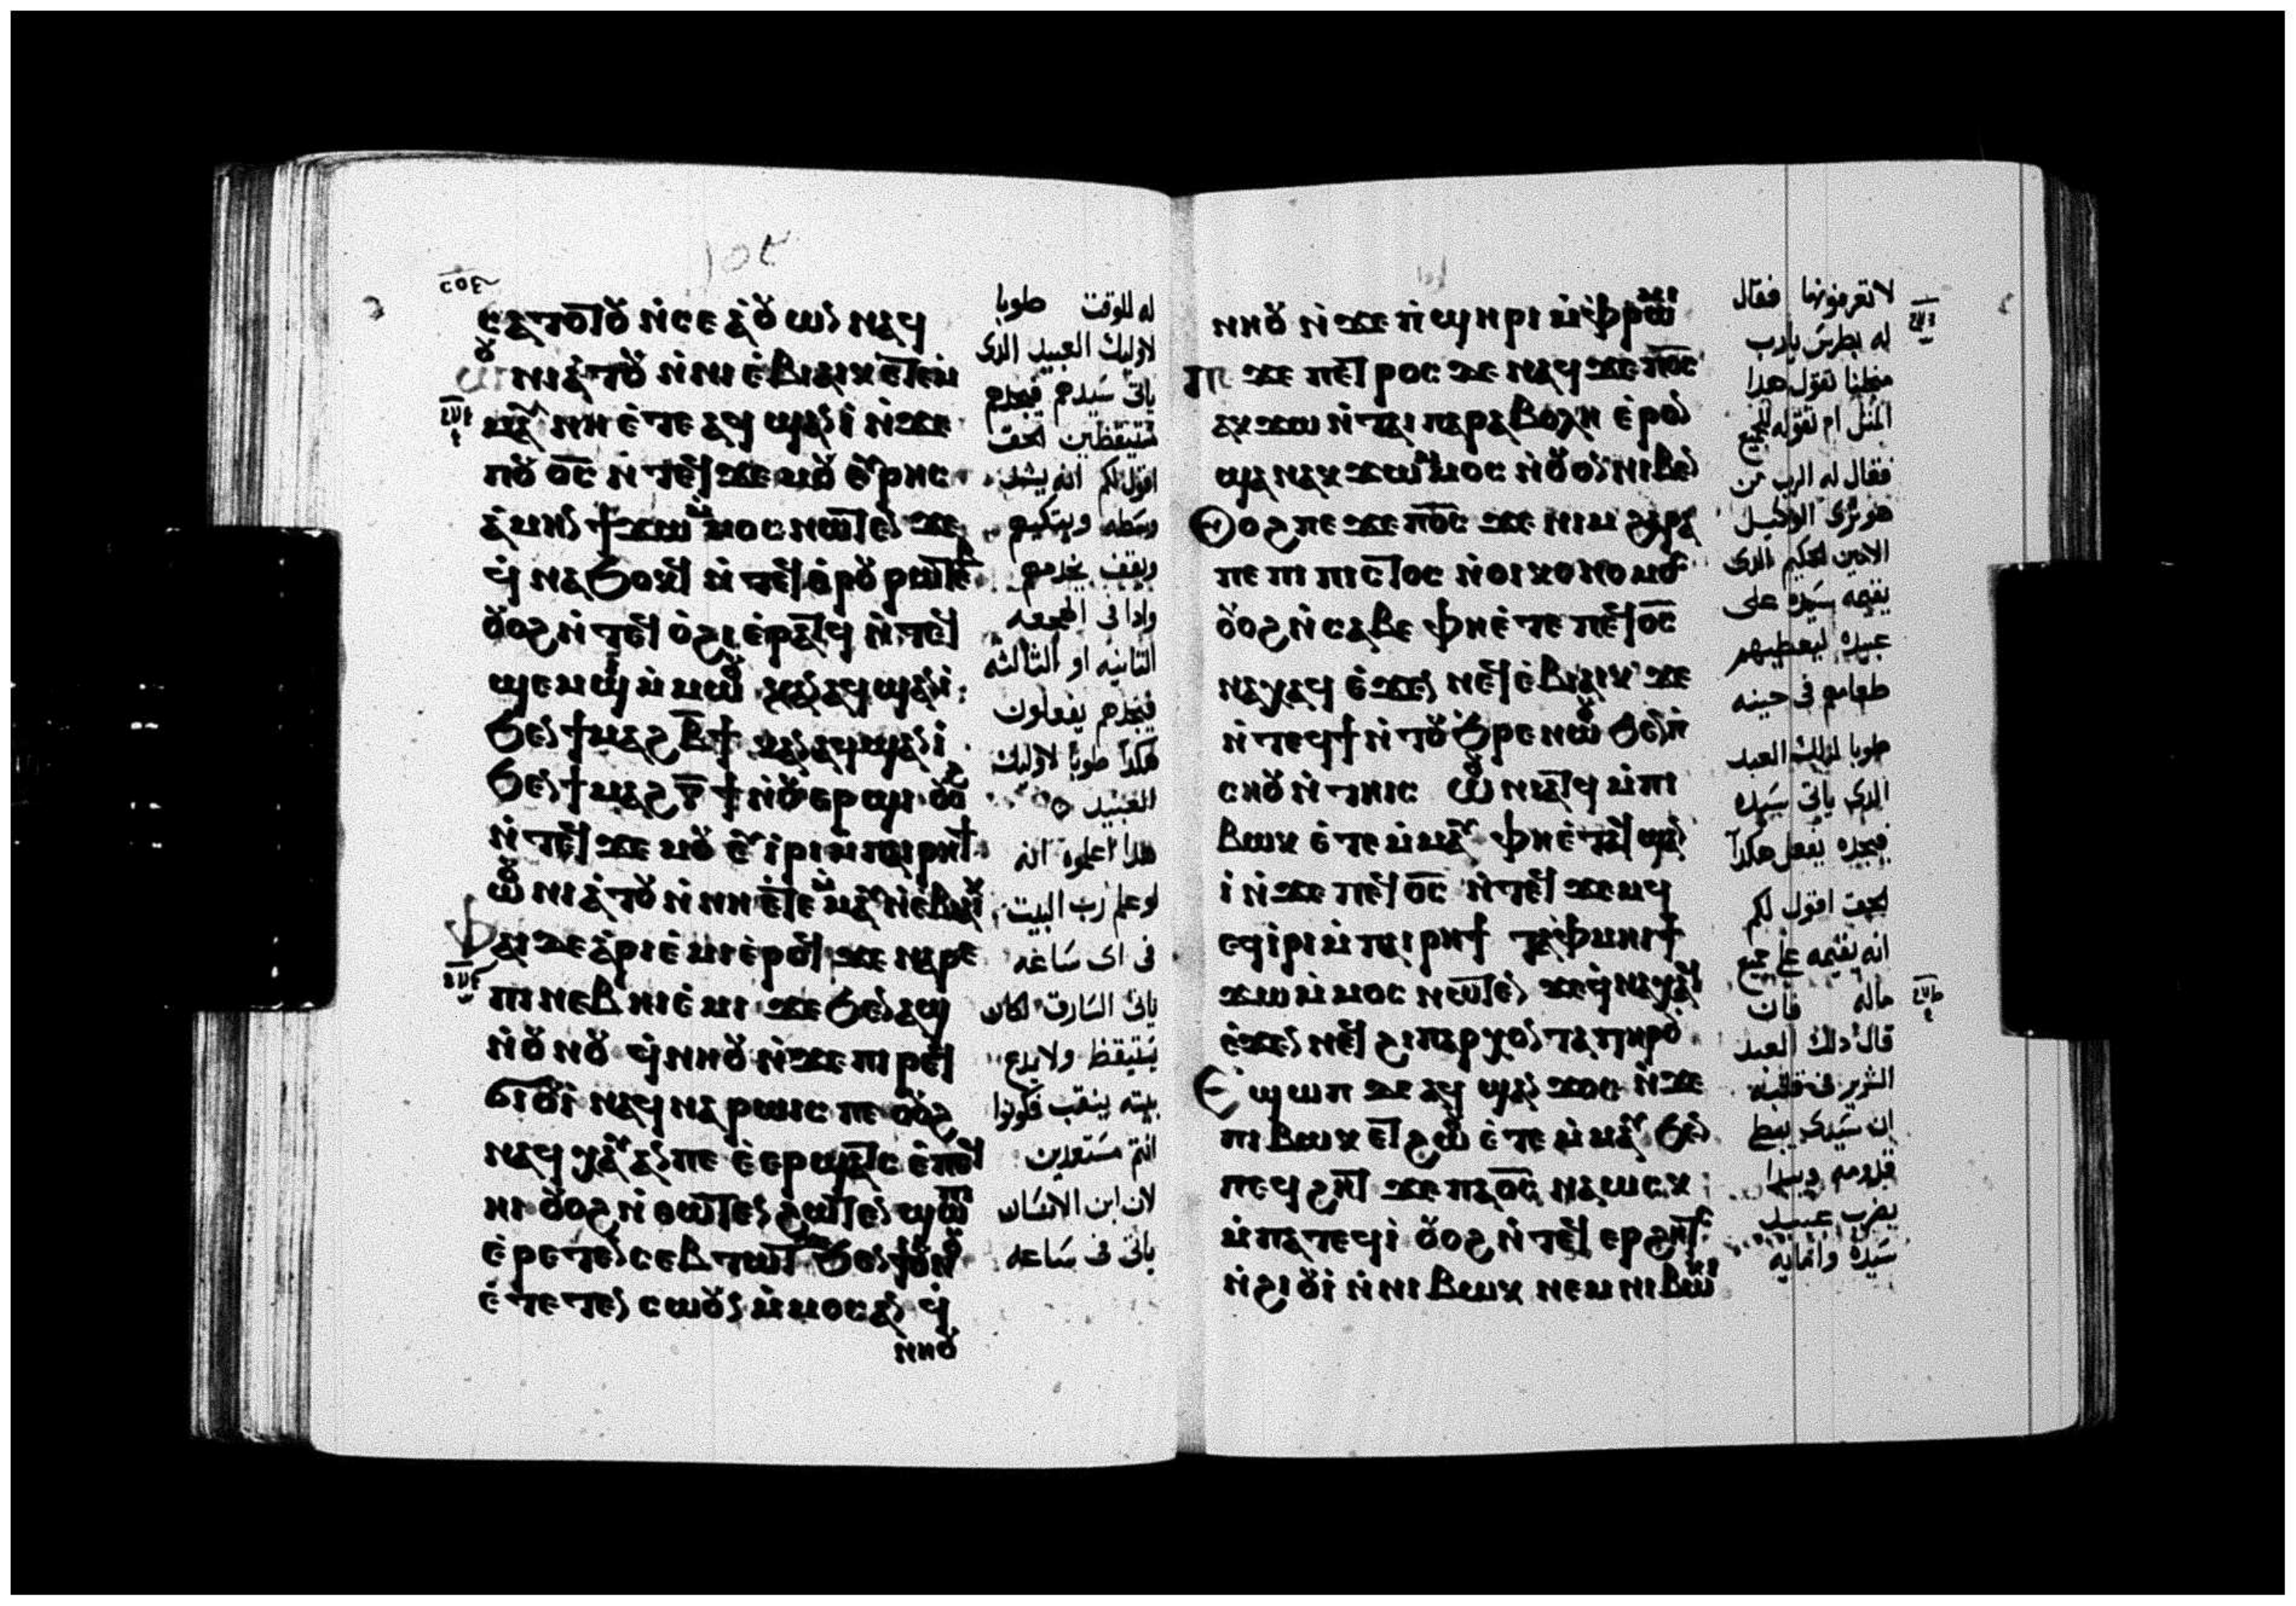 ⲥⲟⲉ
ⲥⲁⲧⲟⲧⲟⲩ ⲛ̇ⲥⲉⲁ̇ⲟⲩⲱⲛ ⲛⲁϥ
ⲱⲟⲩⲛⲓⲁ̇ⲧⲟⲩ ⲛ̇ⲛⲓⲉ̇ⲃⲓⲁⲓⲕ ⲉⲧⲉⲙ
ⲙⲁⲩ ⲛⲏ ⲉ̇ⲧⲉ ⲁϥϣⲁⲛⲓ̇ ⲛ̇ϫⲉ
ⲡⲟⲩ ⲟ̅ⲥ̅ ⲛ̇ⲧⲉϥϫⲉⲙⲟⲩ ⲉⲩⲣⲏⲥ
ⲁ̇ⲙⲏⲛ ϯϫⲱⲙⲙⲟⲥ ⲛⲱⲧⲉⲛ ϫⲉ
ϥ̇ⲛⲁϧⲟⲕϥ ⲛ̇ⲧⲉϥⲑⲣⲟⲩⲣⲱⲧⲉⲃ
ⲟⲩⲟϩ ⲛ̇ⲧⲉϥⲟ̇ϩⲓ ⲉ̇ⲣⲁⲧϥ ⲛ̇ⲧⲉϥ
ϣⲉⲙϣⲓ ⲙ̇ⲙⲱⲟⲩ ⲕⲁⲛ ⲁϥϣⲁⲛⲓ̇
ϧⲉⲛ ϯⲙⲁϩ ⲃ̅ϯ ⲕⲁⲛ ⲁϥϣⲁⲛⲓ̇
ϧⲉⲛ ϯⲙⲁϩ ⲅ̅ϯ ⲛ̇ⲟⲩⲉⲣϣⲓ ⲟⲩⲟϩ
ⲛ̇ⲧⲉϥϫⲉⲙⲟⲩ ⲉⲩⲓ̇ⲣⲓ ⲙ̇ⲡⲁⲓⲣⲏϯ
ⲱⲟⲩⲛⲓⲁ̇ⲧⲟⲩ ⲛ̇ⲛⲏ ⲉ̇ⲧⲉⲙ̇ⲙⲁⲩ ⲛ̇ⲉ̇ⲃⲓⲁⲓⲕ
ⲫⲁⲓ ⲇⲉ ⲁ̇ⲣⲓⲉ̇ⲙⲓ ⲉ̇ⲣⲟϥ ϫⲉ ⲛⲁⲣⲉ
ⲡⲓⲛⲉⲃⲏⲓ ⲉ̇ⲙⲓ ϫⲉ ϧⲉⲛ ⲁϣ
ⲛ̇ⲟⲩⲛⲟⲩ ϥ̇ⲛⲛⲏⲟⲩ ⲛ̇ϫⲉ ⲡⲓⲣⲉϥ
ϭⲓⲟⲩⲓ̇ ⲛⲁϥⲛⲁⲣⲱⲓⲥ ⲡⲉ ⲟⲩⲟϩ
ⲛⲁϥⲭⲁⲩ ⲁⲛ ⲡⲉ ⲉ̇ⲉⲣϣⲁⲧⲥ ⲉ̇ⲡⲉϥ
ⲏⲓ ⲟⲩⲟϩ ⲛ̇ⲑⲱⲧⲉⲛ ϩⲱⲧⲉⲛ ϣⲱⲡⲓ
ⲉ̇ⲣⲉⲧⲉⲛⲥⲉⲃⲧⲱⲧ ϫⲉ ϧⲉⲛ ϯⲟⲩⲛⲟⲩ
ⲉ̇ⲧⲉⲧⲉⲛⲥⲱⲟⲩⲛ ⲙ̇ⲙⲟⲥ ⲁⲛ ϥ̇
ⲛ̇ⲛⲏⲟⲩ
له للوقت طوبا
لاوليك العبيد الذى
ياتى سَيدهم فيجدهم
متيقظين الحق
اقول لكم انه يشد
وسَطه ويتكيهم
ويقف يخدمهم
واذا فى الهجعه
الثانيه او الثالثه
فيجدهم يفعلون
هكذا طوبا لاوليك
العبيد
هذا اعلموه انه
لو علم رب البيت
فى اى سَاعه
ياتى السَارق لكان
يَستيقظ ولا يدع
بيته ينقب فكونوا
انتم مسَتعدين
لان ابن الانسَان
ياتى فى سَاعه
ⲛⲏⲟⲩ ⲛ̇ϫⲉ ⲡ̇ϣⲏⲣⲓ ⲙ̇ⲫⲣⲱⲙⲓ
ⲡⲉϫⲉ ⲡⲉⲧⲣⲟⲥ ⲇⲉ ⲛⲁϥ ϫⲉ ⲡ̅ⲟ̅ⲥ̅
ⲁⲕϫⲱ ⲛ̇ⲧⲁⲓⲡⲁⲣⲁⲃⲟⲗⲏ ⲉ̇ⲣⲟⲛ
ϣⲁⲛ ⲁⲕϫⲱⲙⲙⲟⲥ ⲛ̇ⲟⲩⲟⲛ ⲛⲓⲃⲉⲛ
ⲟⲩⲟϩ ⲡⲉϫⲉ ⲡ̅ⲟ̅ⲥ̅ ϫⲉ ⲛⲓⲙ ϩⲁⲣⲁ
ⲡⲉ ⲡⲓⲡⲓⲥⲧⲟⲥ ⲛ̇ⲟⲓⲕⲟⲛⲟⲙⲟⲥ
ⲟⲩⲟϩ ⲛ̇ⲥⲁⲃⲉ ⲫⲏ ⲉ̇ⲧⲉ ⲡⲉϥⲟ̅ⲥ̅
ⲛⲁⲭⲁϥ ⲉ̇ϫⲉⲛ ⲛⲉϥⲉ̇ⲃⲓⲁⲓⲕ ϫⲉ
ⲛ̇ⲧⲉϥϯ ⲛ̇ⲧⲟⲩϧⲣⲉ ⲛⲱⲟⲩ ϧⲉⲛ ⲡ̇
ⲥⲏⲟⲩ ⲛ̇ⲧⲏⲓⲥ ⲱⲟⲩⲛⲓⲁⲧϥ ⲙ̇ⲡⲓ
ⲃⲱⲕ ⲉ̇ⲧⲉⲙ̇ⲙⲁⲩ ⲫⲏ ⲉ̇ⲧⲁϥϣⲁⲛ
ⲓ̇ ⲛ̇ϫⲉ ⲡⲉϥⲟ̅ⲥ̅ ⲛ̇ⲧⲉϥϫⲉⲙϥ
ⲉϥⲓ̇ⲣⲓ ⲙ̇ⲡⲁⲓⲣⲏϯ ⲧⲁⲫⲙⲏⲓ ϯ
ϫⲱ ⲙ̇ⲙⲟⲥ ⲛⲱⲧⲉⲛ ϫⲉ ϥ̇ⲛⲁⲭⲁϥ
ⲉ̇ϫⲉⲛ ⲛⲉϥϩⲩⲡⲁⲣⲭⲟⲛⲧⲁ ⲧⲏⲣⲟⲩ
ⲉϣⲱⲡ ⲇⲉ ⲁϥϣⲁⲛϫⲟⲥ ⲛ̇ϫⲉ
ⲡⲓⲃⲱⲕ ⲉⲧϩⲱⲟⲩ ⲉ̇ⲧⲉⲙ̇ⲙⲁⲩ ϧⲉⲛ
ⲡⲉϥϩⲏⲧ ϫⲉ ⲡⲁⲟ̅ⲥ̅ ⲛⲁⲱⲥⲕ
ⲙ̇ⲡⲁⲧⲉϥⲓ̇ ⲟⲩⲟϩ ⲛ̇ⲧⲉϥⲉⲣϩⲏⲧⲥ
ⲛ̇ϩⲓⲟⲩⲓ̇ ⲛ̇ⲛⲓⲃⲱⲕ ⲛⲉⲙ ⲛⲓⲃⲱⲕⲓ
لا تعرفونها فقال
له بطرسَ يارب
من اجلنا تقول هذا
المثل ام تقوله للجميع
فقال له الرب من
هو ترى الوكيل
الامين الحكيم الذى
يقيمه سَيده على
عبيده ليعطيهم
طعامهم فى حينه
طوبا لذلك العبد
الذى ياتى سَيده
فيجده يفعل هكذا
الحق اقول لكم
انه يقيمه على جميع
ماله فان
قال ذلك العبد
الشرير فى قلبه
ان سَيدى يبطى
قدومه ويبدا
يضرب عبيد
سَيده وامايه